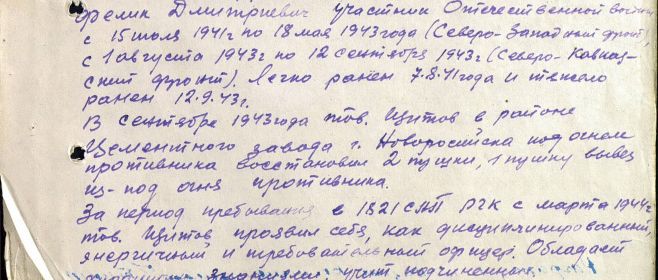 Дмитриевич участник Отечественной войны
с 15 июля 1941г по 18 мая 1943 года (Северо-Западный фронт),
с 1 августа 1943г по 12 сентября 1943г (Северо-Кавказ-
ский фронт). Легко ранен 7.8.41 года и тяжело
ранен 12.9.43г.
В сентябре 1943 года тов. Щитов в районе
Цементного завода г. Новоросийска под огнем
противника восстановил 2 пушки, 1 пушку вывез
из-под огня противника.
За период пребывания в 1821 САП РГК с марта 1944г
тов. Щитов проявил себя, как дисциплинированный,
энергичный и требовательный офицер. Обладает
знаниями учит подчиненных